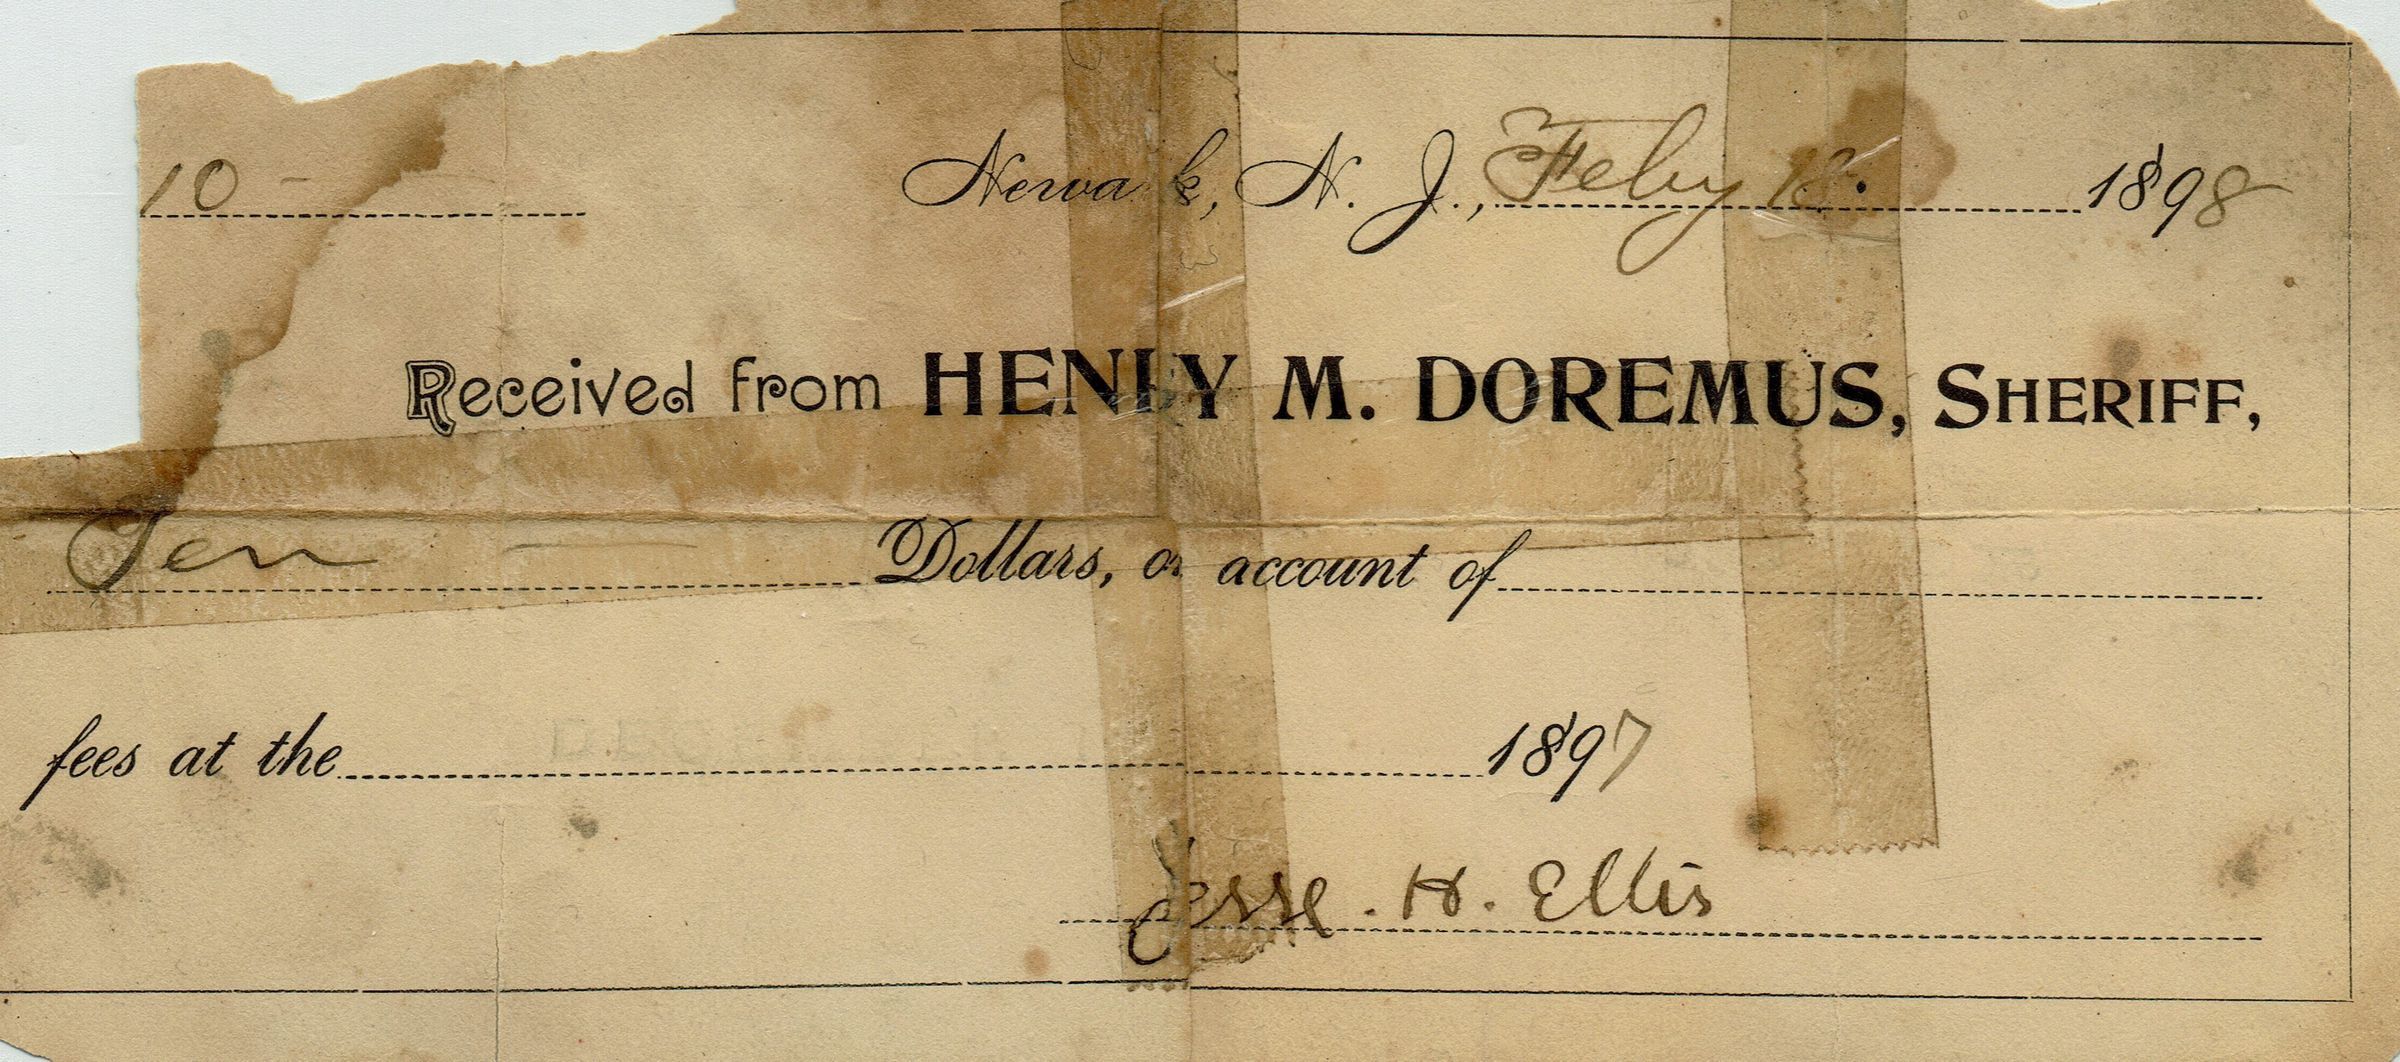 10 -
Newark, N. J., Feby 1898
Received from HENRY M. DOREMUS, SHERIFF,
Ten — Dollars, on account of
fees at the 1897
Jesse. H. Ellis